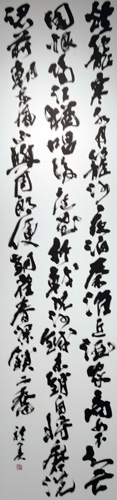 煙籠寒水月籠沙夜泊秦淮近酒家商女不知亡
國恨隔江猶唱後庭花折戟沉沙鐵未銷自將磨洗
認前朝東風不與周郎便銅雀春深鎖二喬